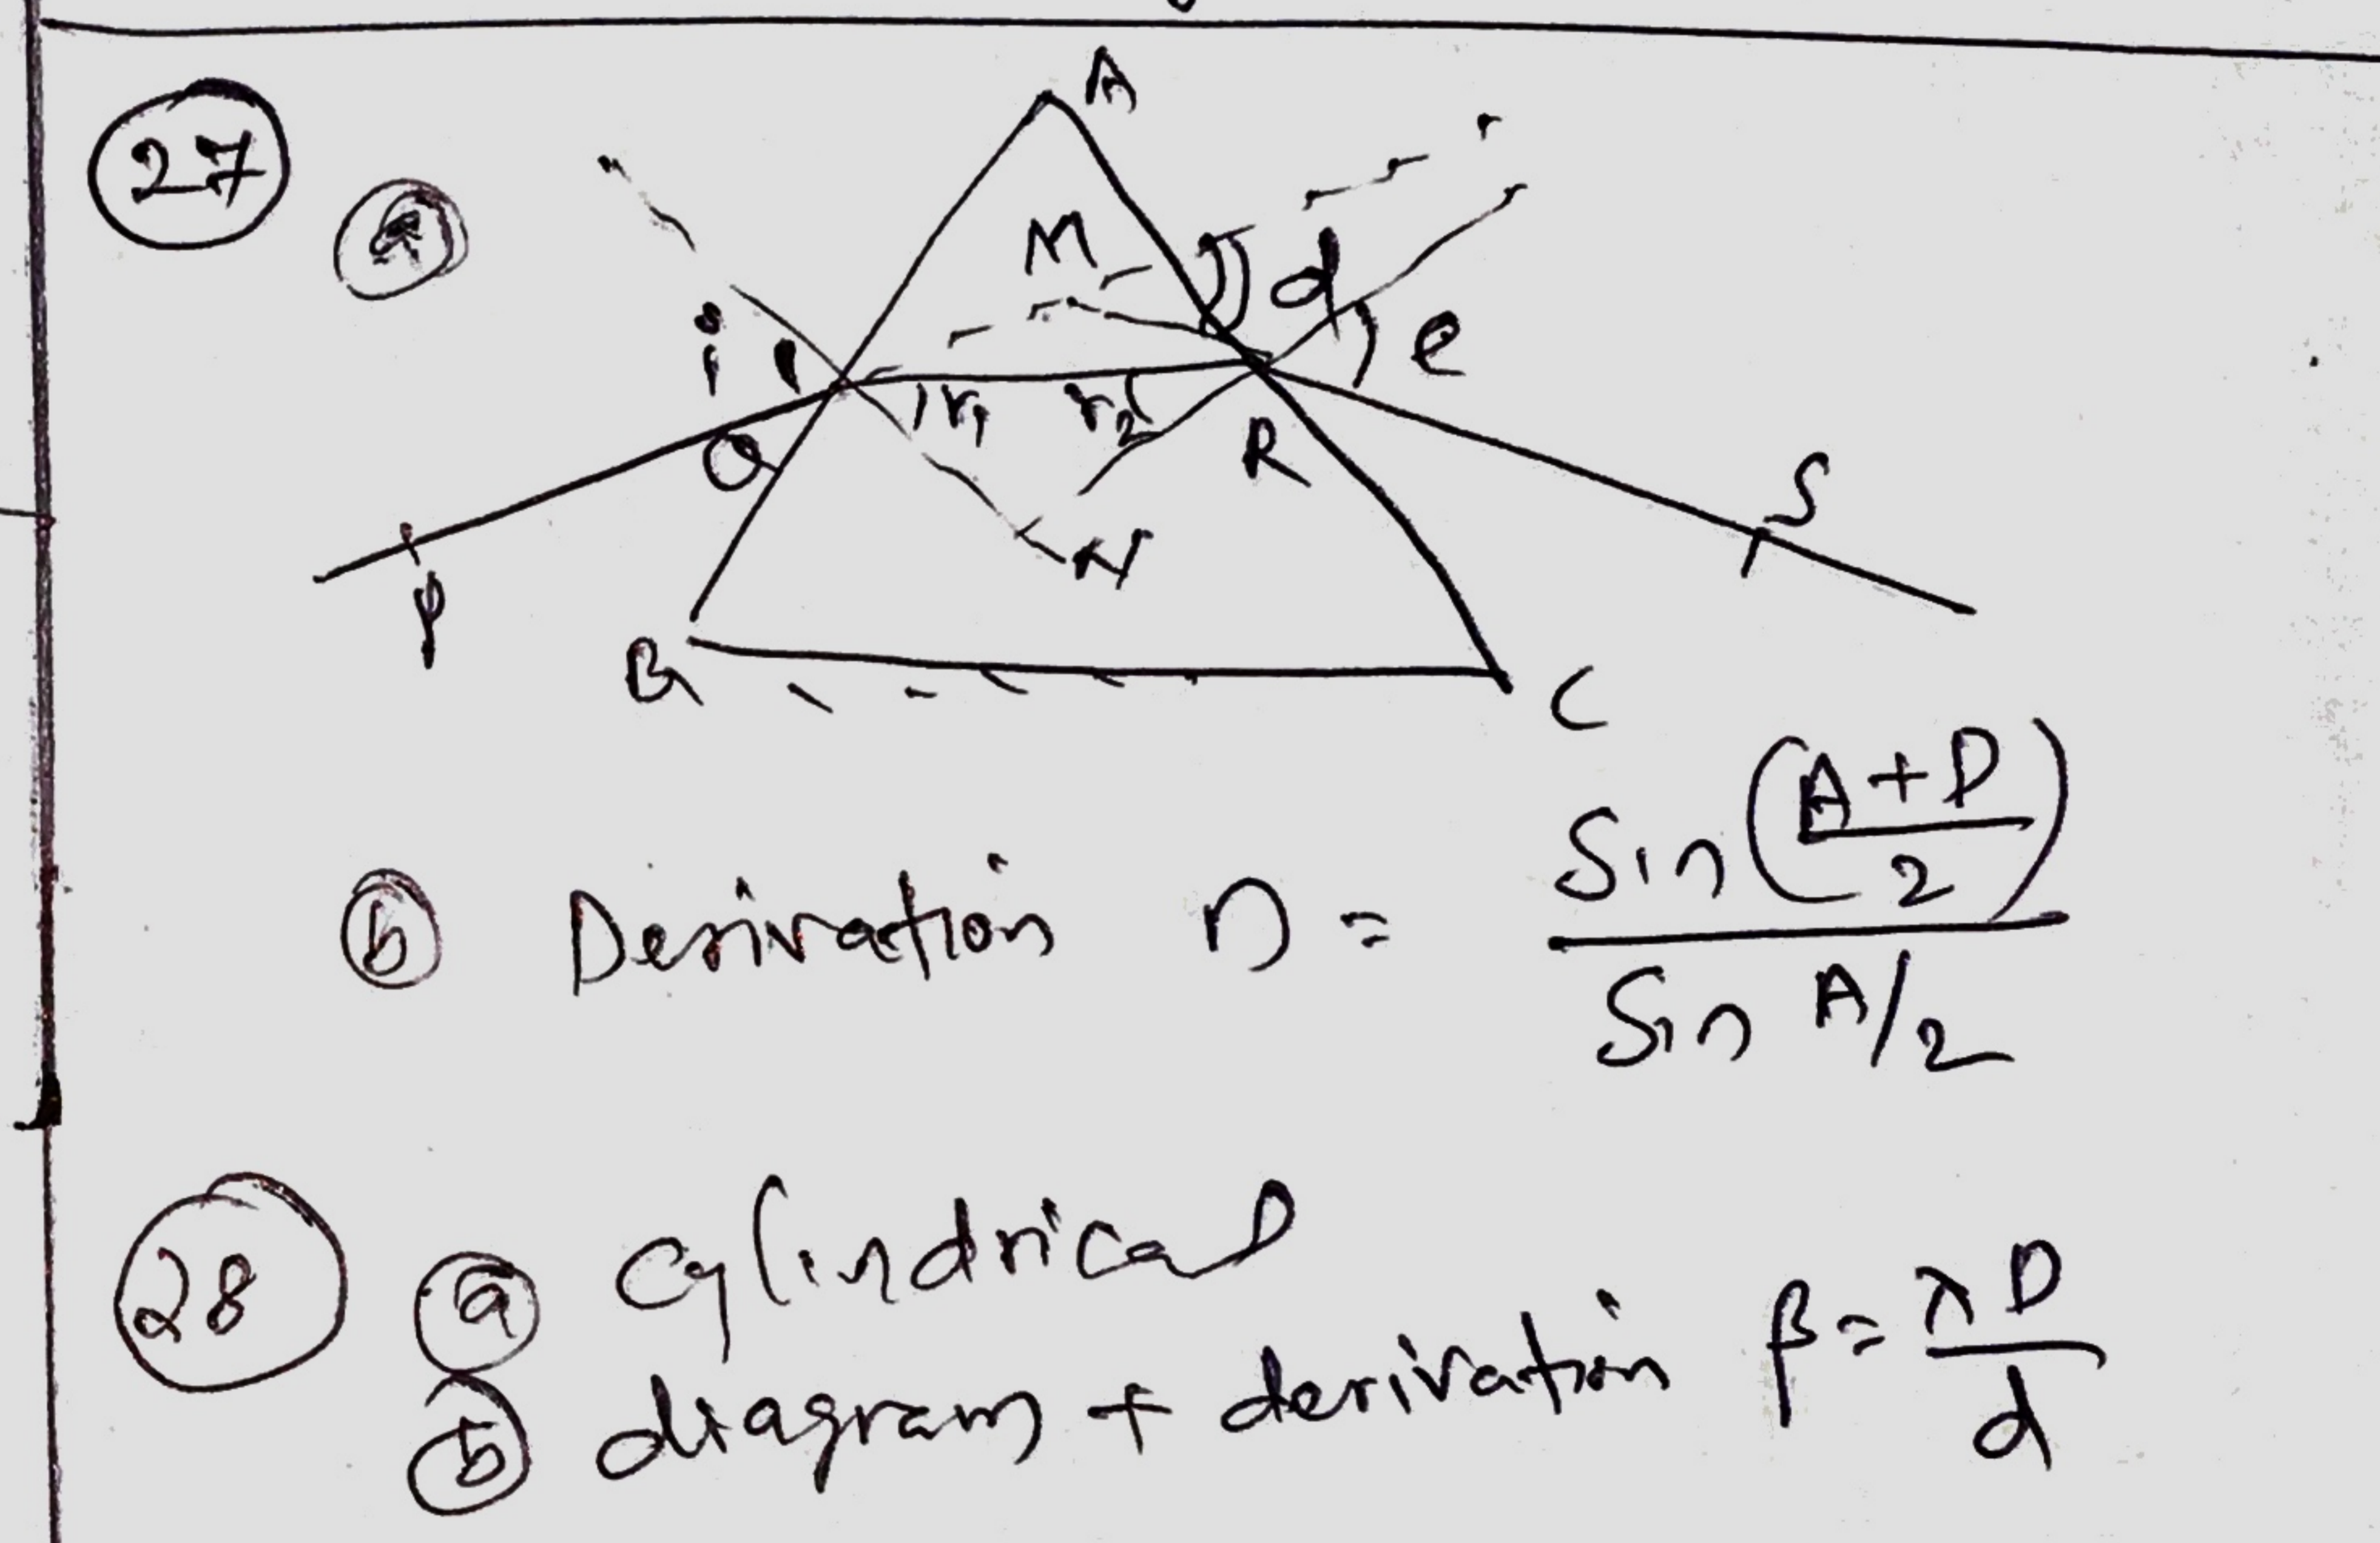 27
a
A
M
d
i
e
r1 r2
Q
R
S
N
P
B
C
b Derivation n = Sin(A+D/2) / Sin A/2
28 a Cylindrical
b diagram + derivation β = λD/d